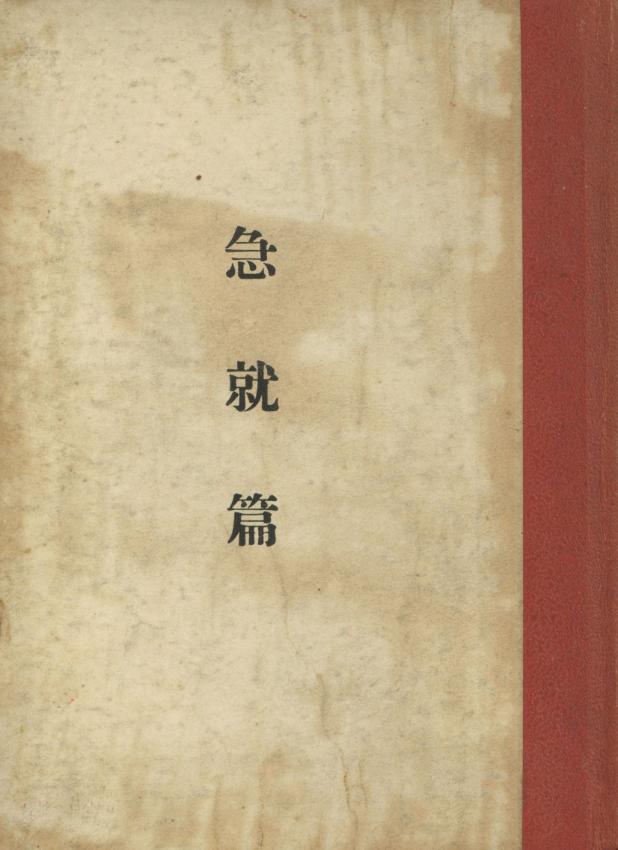 急就篇